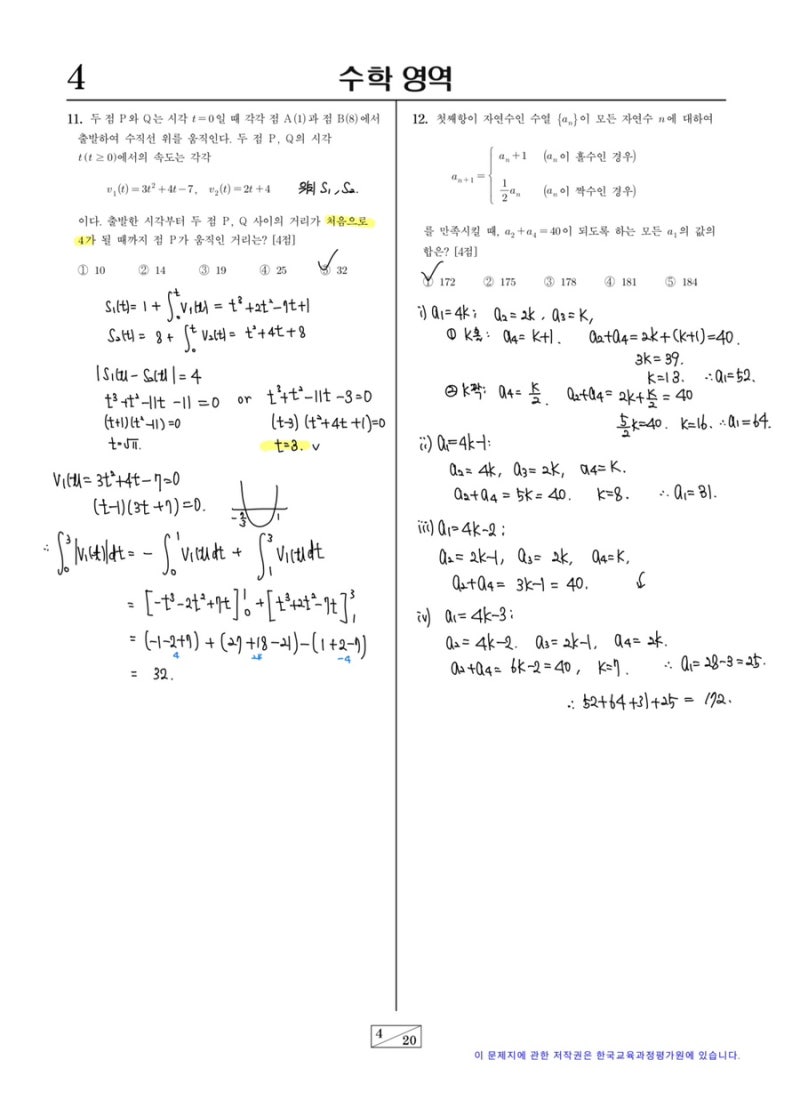 4
수학 영역
11. 두 점 P와 Q는 시각 t=0일 때 각각 점 A(1)과 점 B(8)에서
출발하여 수직선 위를 움직인다. 두 점 P, Q의 시각
t(t≥0)에서의 속도는 각각
v₁(t)=3t²+4t-7, v₂(t)=2t+4 위치 S₁, S₂.
이다. 출발한 시각부터 두 점 P, Q 사이의 거리가 처음으로
4가 될 때까지 점 P가 움직인 거리는? [4점]
① 10 ② 14 ③ 19 ④ 25 ⑤ 32
S₁(t)= 1 + ∫₀ᵗ V₁(t) = t³+2t²-7t+1
S₂(t)= 8 + ∫₀ᵗ V₂(t)= t²+4t+8
|S₁(t) - S₂(t)|=4
t³+t²-11t-11=0 or t³+t²-11t-3=0
(t+1)(t²-11)=0 (t-3)(t²+4t+1)=0
t=√11. t=3. ∨
V₁(t)= 3t²+4t-7=0
(t-1)(3t+7)=0. -7/3 1
∴ ∫₀³|V₁(t)|dt = - ∫₀¹ V₁(t)dt + ∫₁³ V₁(t)dt
= [-t³-2t²+7t]₀¹ + [t³+2t²-7t]₁³
= (-1-2+7) + (27+18-21) - (1+2-7)
4 -4
= 32.
12. 첫째항이 자연수인 수열 {aₙ}이 모든 자연수 n에 대하여
aₙ₊₁ = { aₙ+1 (aₙ이 홀수인 경우)
1/2 aₙ (aₙ이 짝수인 경우)
를 만족시킬 때, a₂+a₄=40이 되도록 하는 모든 a₁의 값의
합은? [4점]
① 172 ② 175 ③ 178 ④ 181 ⑤ 184
i) a₁=4k; a₂=2k, a₃=k,
① k홀: a₄=k+1. a₂+a₄=2k+(k+1)=40.
3k=39.
k=13. ∴a₁=52.
② k짝: a₄= k/2. a₂+a₄= 2k+k/2 = 40
5/2k=40. k=16. ∴a₁=64.
ii) a₁=4k-1:
a₂= 4k, a₃= 2k, a₄=k.
a₂+a₄= 5k= 40. k=8. ∴ a₁= 31.
iii) a₁=4k-2;
a₂= 2k-1, a₃= 2k, a₄=k,
a₂+a₄= 3k-1 = 40.
iv) a₁= 4k-3;
a₂= 4k-2. a₃= 2k-1, a₄= 2k.
a₂+a₄= 6k-2=40, k=7. ∴ a₁=28-3=25.
∴ 52+64+31+25 = 172.
4
20
이 문제지에 관한 저작권은 한국교육과정평가원에 있습니다.